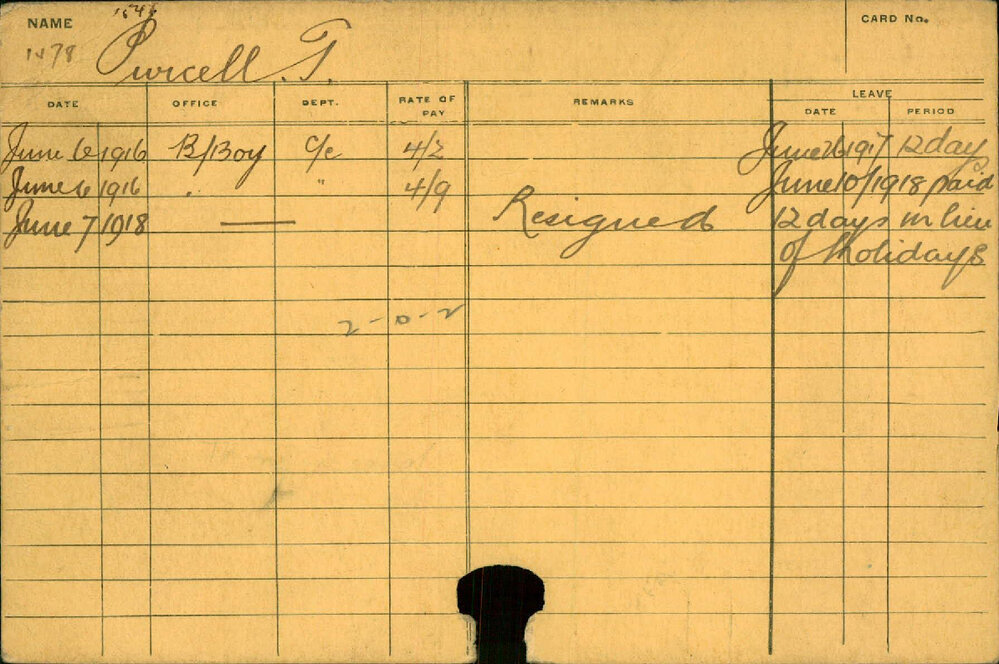 NAME
1546
CARD No.
1478
Purcell. T.
DATE OFFICE DEPT. RATE OF PAY REMARKS LEAVE
DATE PERIOD
June 6 1916 B/Boy C/e 4/2 June 26 1917 12 day
June 6 1916 " " 4/9 June 10/1918 paid
June 7 1918 — Resigned 12 days in lieu
of Holidays
2-0-2